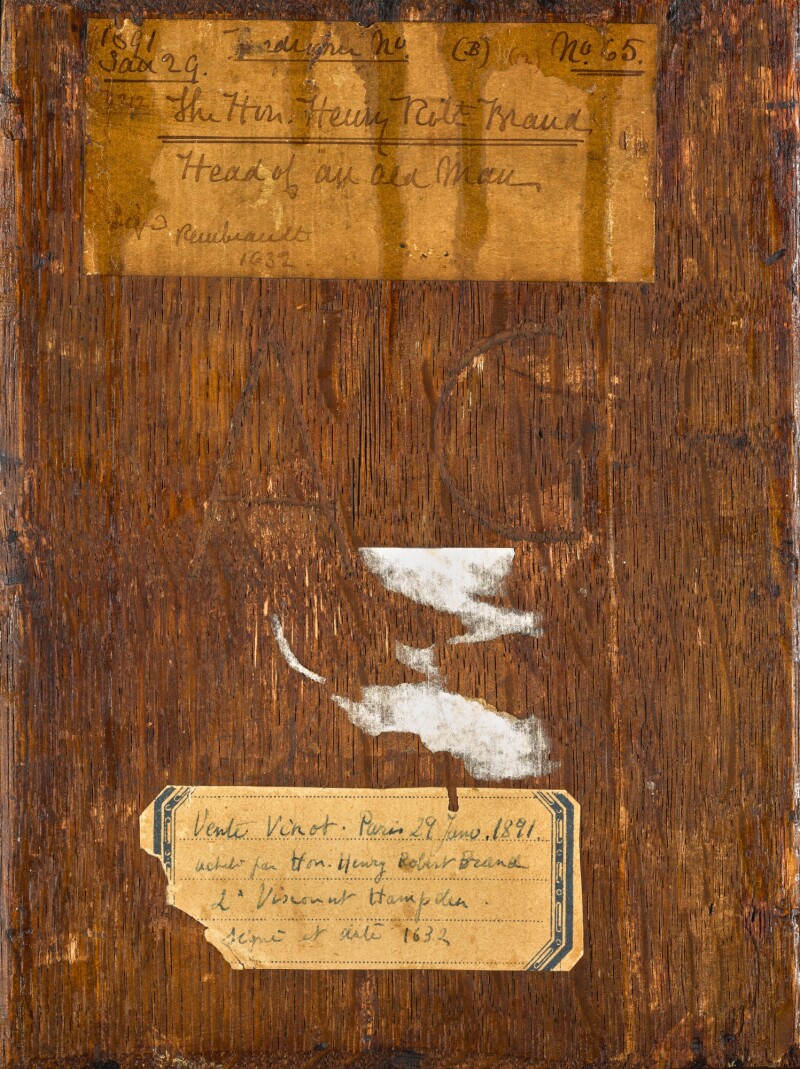 1891
Jan 29.
No
(B)
No 65.
The Hon. Henry Robt Brand
Head of an old Man
Rembrandt
1632
A G
Vente Vinot. Paris 29 Janv. 1891.
acheté par Hon. Henry Robert Brand
2e Viscount Hampden.
signé et daté 1632